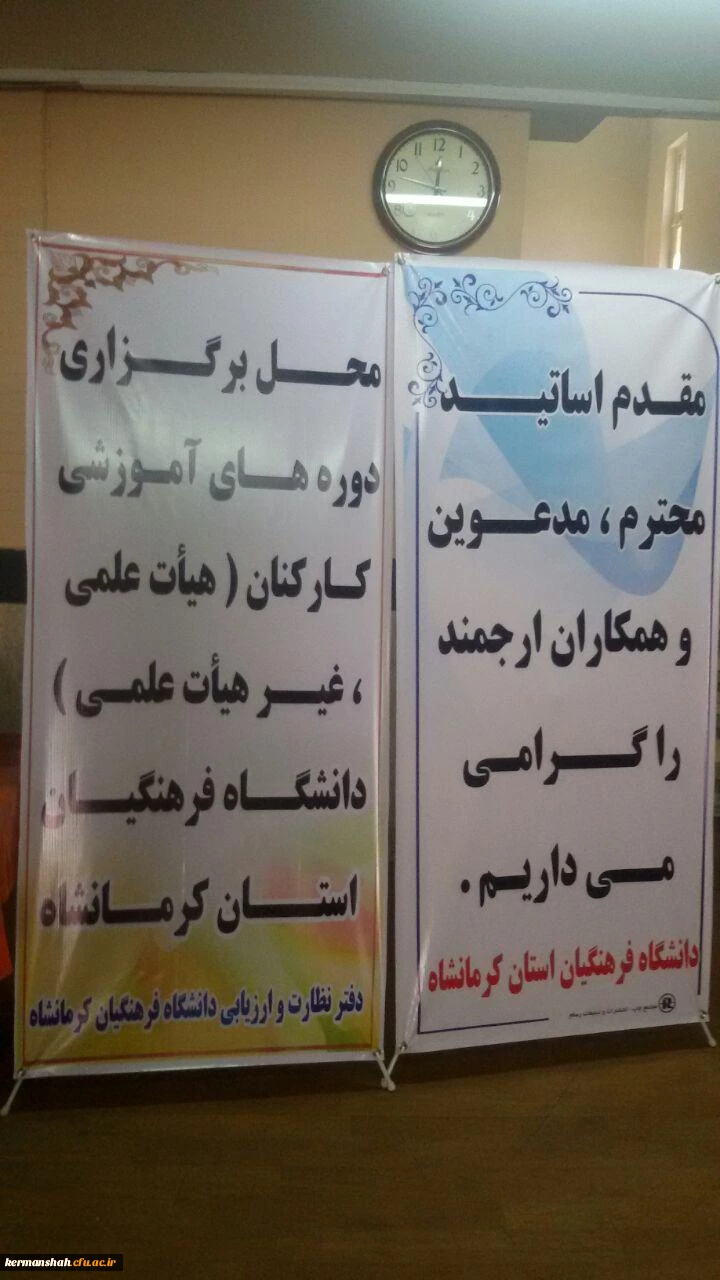 مقدم اساتید
محترم ، مدعوین
و همکاران ارجمند
را گرامی
می داریم .
دانشگاه فرهنگیان استان کرمانشاه
محل برگزاری
دوره های آموزشی
کارکنان ( هیأت علمی
، غیر هیأت علمی )
دانشگاه فرهنگیان
استان کرمانشاه
دفتر نظارت و ارزیابی دانشگاه فرهنگیان کرمانشاه
12
1
2
3
4
9
10
11
kermanshah.cfu.ac.ir